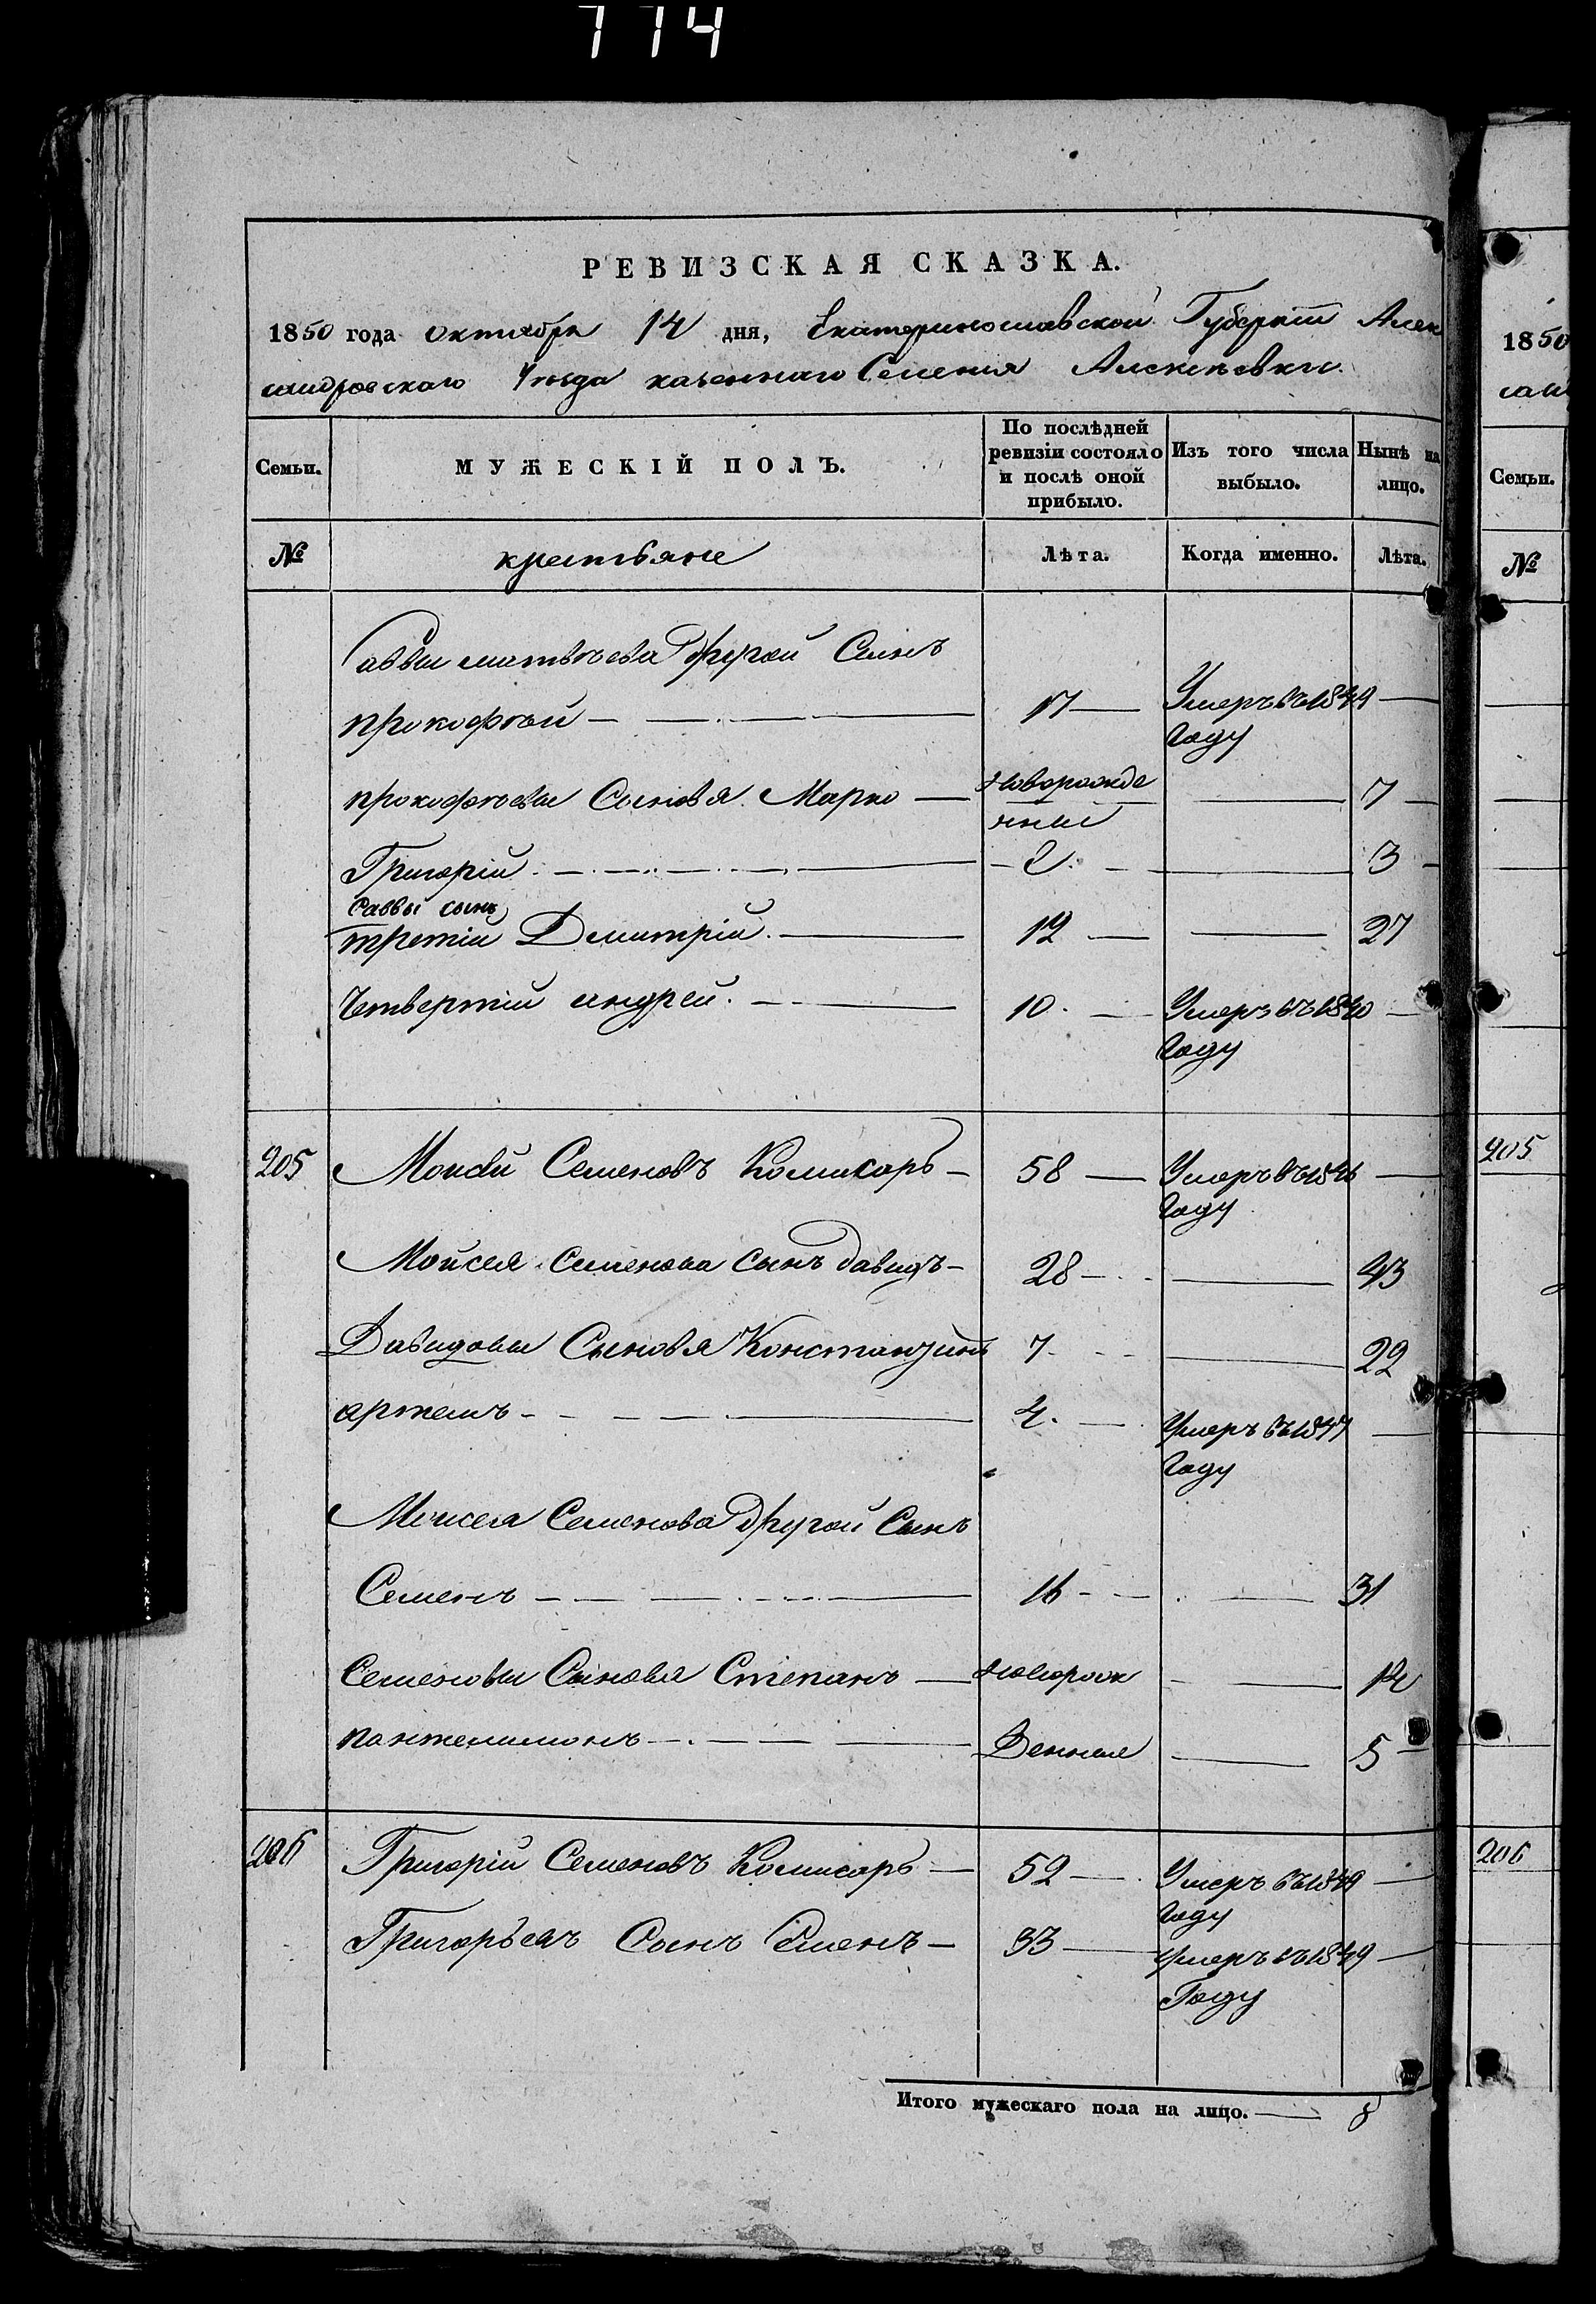 774
РЕВИЗСКАЯ СКАЗКА.
1850 года октября 14 дня, Екатеринославской Губерніи Алек
сандровскаго Уѣзда казеннаго Селенія Алексѣевки
Семьи. МУЖЕСКІЙ ПОЛЪ. По послѣдней ревизіи состояло и послѣ оной прибыло. Изъ того числа выбыло. Нынѣ на лицо.
№ крестьяне Лѣта. Когда именно. Лѣта.
Саввы матвѣева другой Сынъ
прокофѣй — 17 — Умеръ въ 1849 —
Году
прокофѣевы Сыновя Марко — Новорожде — 7 —
нный
Григорій — 2 — 3 —
Саввы сынъ
третіи Дмитрій — 12 — — 27
Четвертіи андрей — 10 — Умеръ въ 1840 —
Году
205 Моисѣй Семеновъ Комисаръ — 58 — Умеръ въ 1846 —
Году
Мойсея Семенова сынъ давидъ — 28 — — 43
Давидовы Сыновя Константинъ 7 — — 22
артемъ — 4 — Умеръ въ 1847 —
Году
Моисея Семенова другой Сынъ
Семенъ — 16 — — 31
Семеновы Сыновя Степанъ — новорож — 14
пантелимонъ — Денные — 5 —
206 Григорій Семеновъ Комисаръ — 52 — Умеръ въ 1849 —
Году
Григорьевъ Сынъ Семенъ — 33 — Умеръ въ 1849 —
Году
Итого мужескаго пола на лицо. — 8
1850
сан
Семьи.
№
205
206